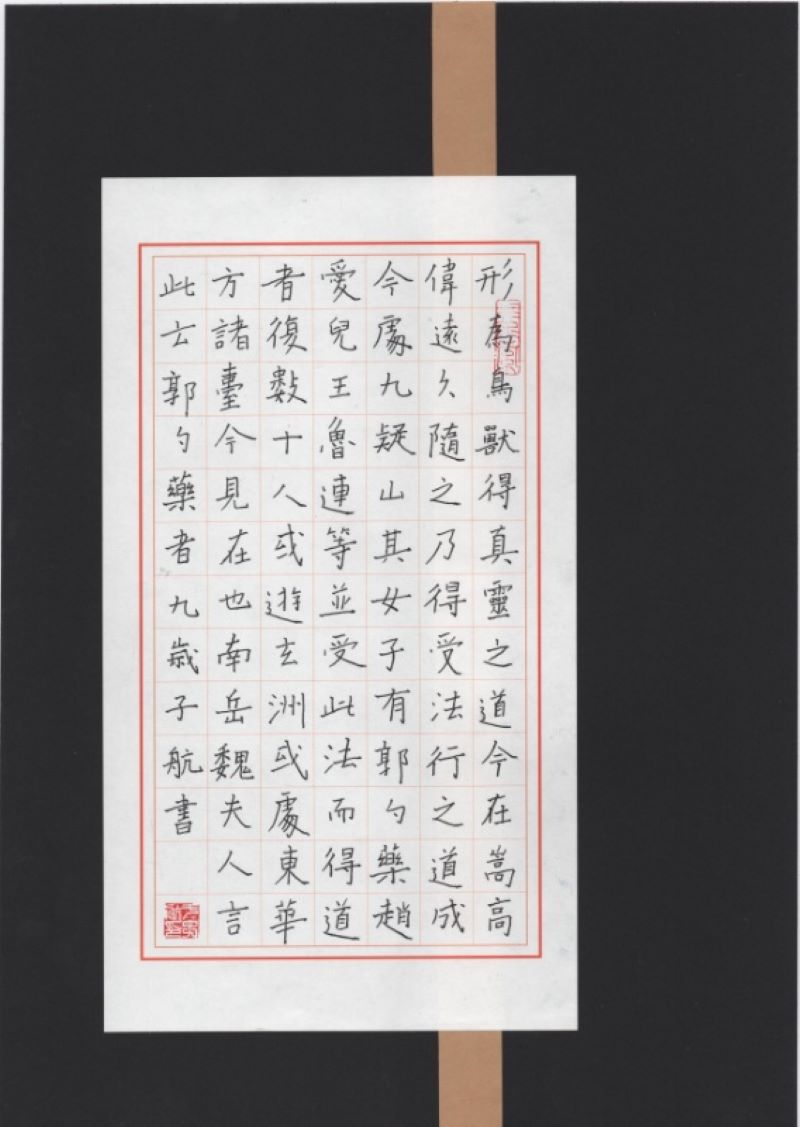 形為鳥獸得真靈之道今在嵩高
偉遠久隨之乃得受法行之道成
今處九疑山其女子有郭勺藥趙
愛兒王魯連等並受此法而得道
者復數十人或遊玄洲或處東華
方諸臺今見在也南岳魏夫人言
此云郭勺藥者九歲子航書